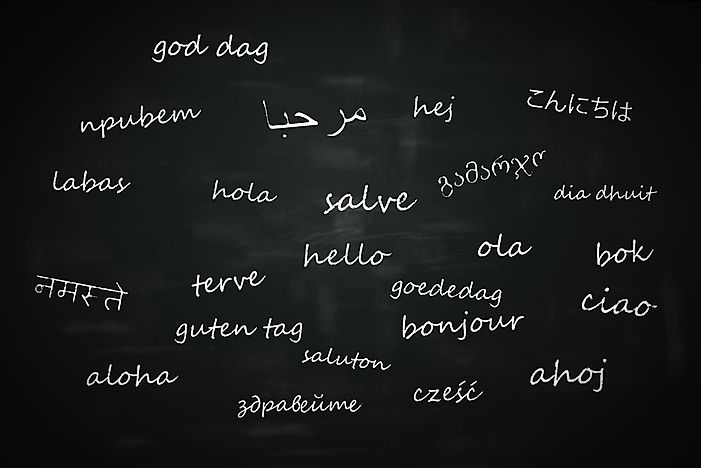 god dag
привет
مرحبا
hej
こんにちは
labas
hola
salve
გამარჯო
dia dhuit
hello
ola
bok
नमस्ते
terve
goededag
ciao
guten tag
bonjour
saluton
aloha
здравейте
cześć
ahoj